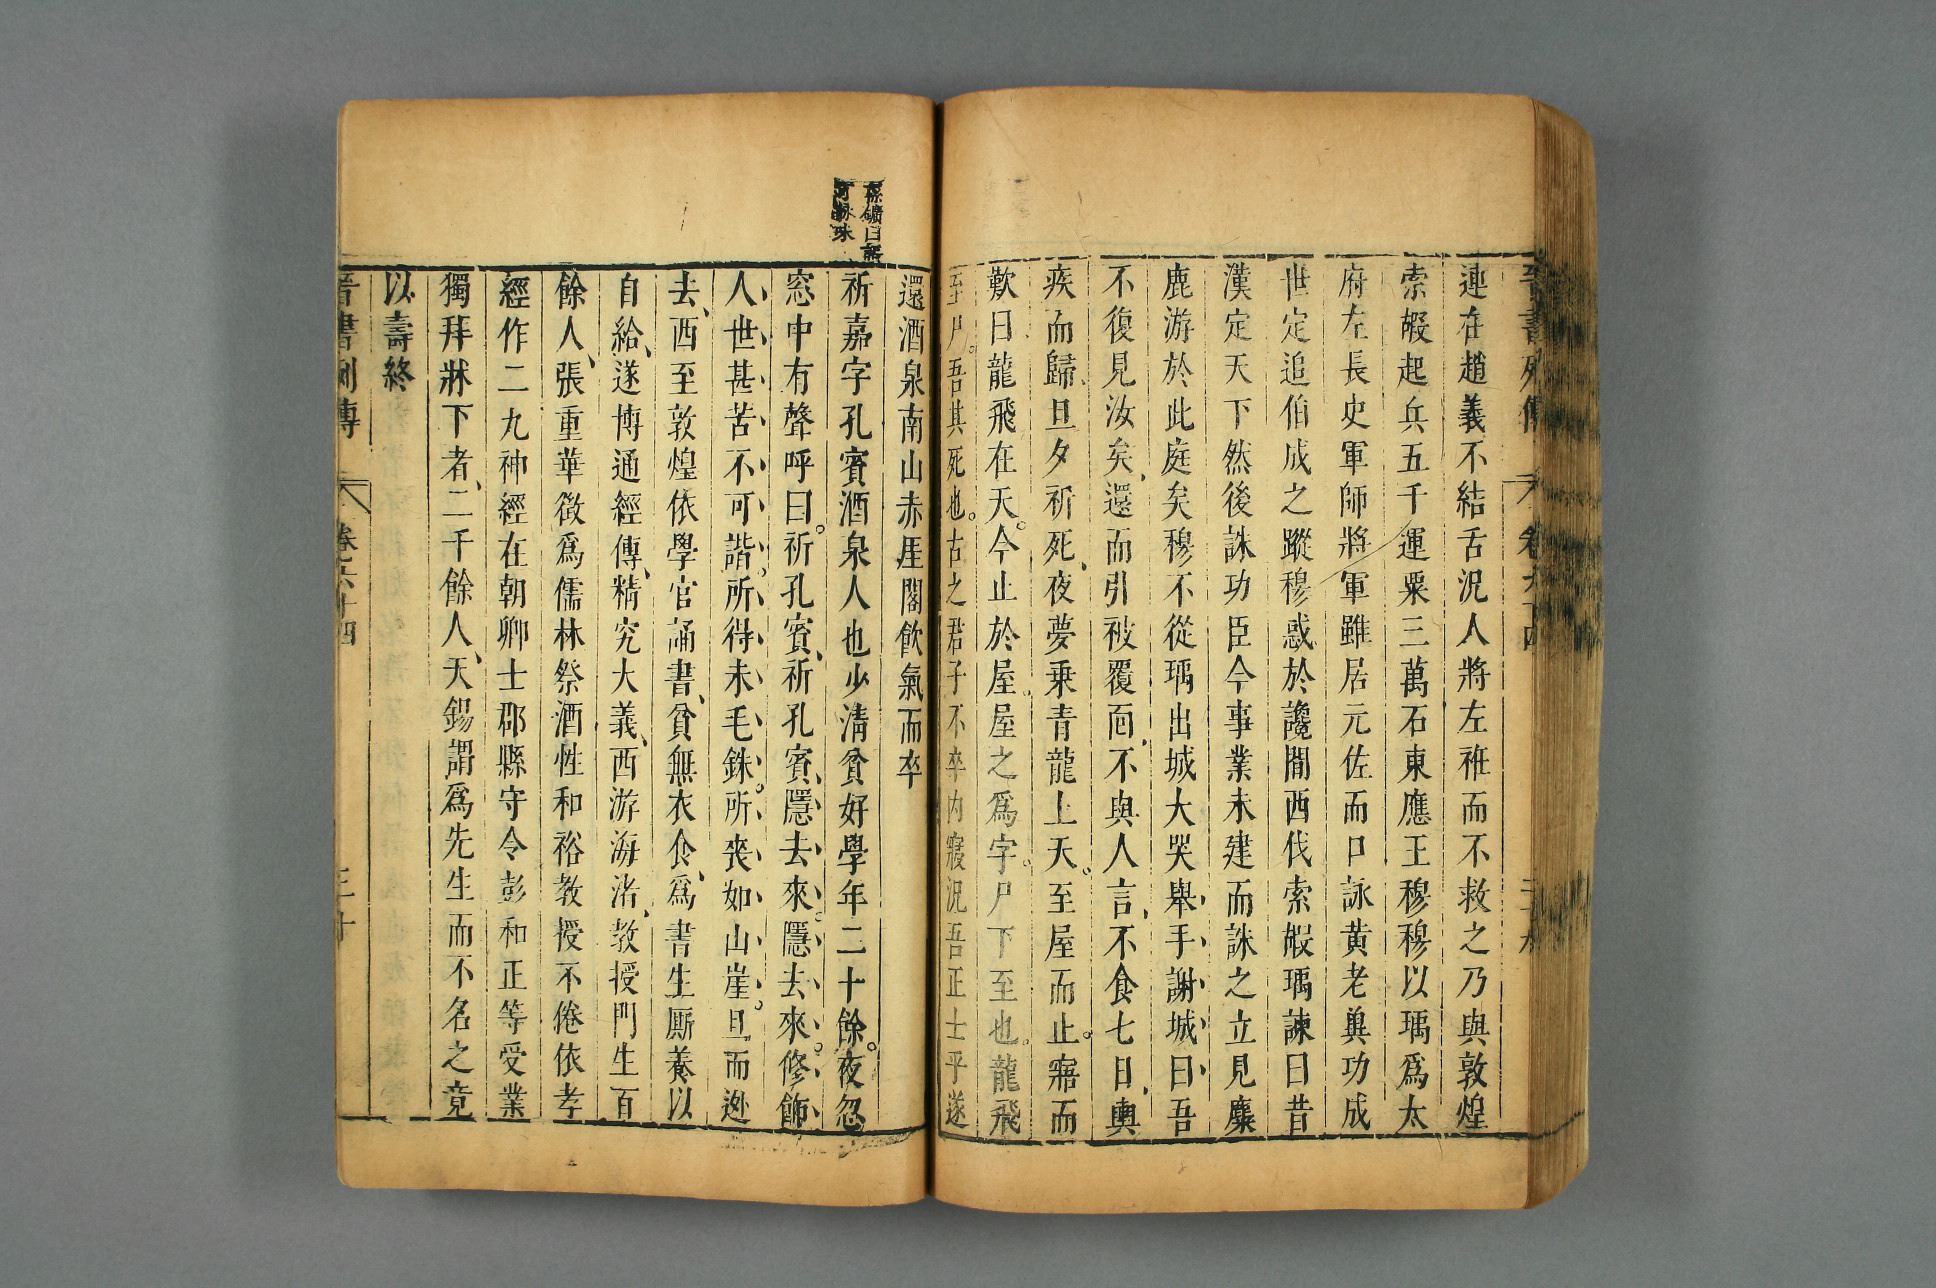 連在趙義不結舌況人將左衽而不救之乃與敦煌
索嘏起兵五千運粟三萬石東應王穆穆以瑀爲太
府左長史軍師將軍雖居元佐而口詠黄老兾功成
世定追伯成之蹤穆惑於讒間西伐索嘏瑀諫曰昔
漢定天下然後誅功臣今事業未建而誅之立見麋
鹿游於此庭矣穆不從瑀出城大哭舉手謝城曰吾
不復見汝矣、還而引被覆面、不與人言、不食七日、輿
疾而歸、旦夕祈死、夜夢乗青龍上天。至屋而止。寤而
歎曰龍飛在天。今止於屋。屋之爲字。尸下至也。龍飛
至尸。吾其死也。古之君子不卒内寢況吾正士乎遂
還酒泉南山赤厓閣飲氣而卒
祈嘉字孔賓酒泉人也少清貧好學年二十餘。夜忽
窓中有聲呼曰。祈孔賓、祈孔賓、隱去來。隱去來。修飾
人世甚苦不可諧。所得未毛銖。所喪如山崖。旦而逃
去、西至敦煌依學官誦書、貧無衣食、爲書生厮養以
自給、遂博通經傳、精究大義、西游海渚、教授門生百
餘人、張重華徵爲儒林祭酒性和裕教授不倦依孝
經作二九神經在朝卿士郡縣守令彭和正等受業
獨拜牀下者、二千餘人、天錫謂爲先生而不名之竟
以壽終
晋書列傳 卷六十四 三十